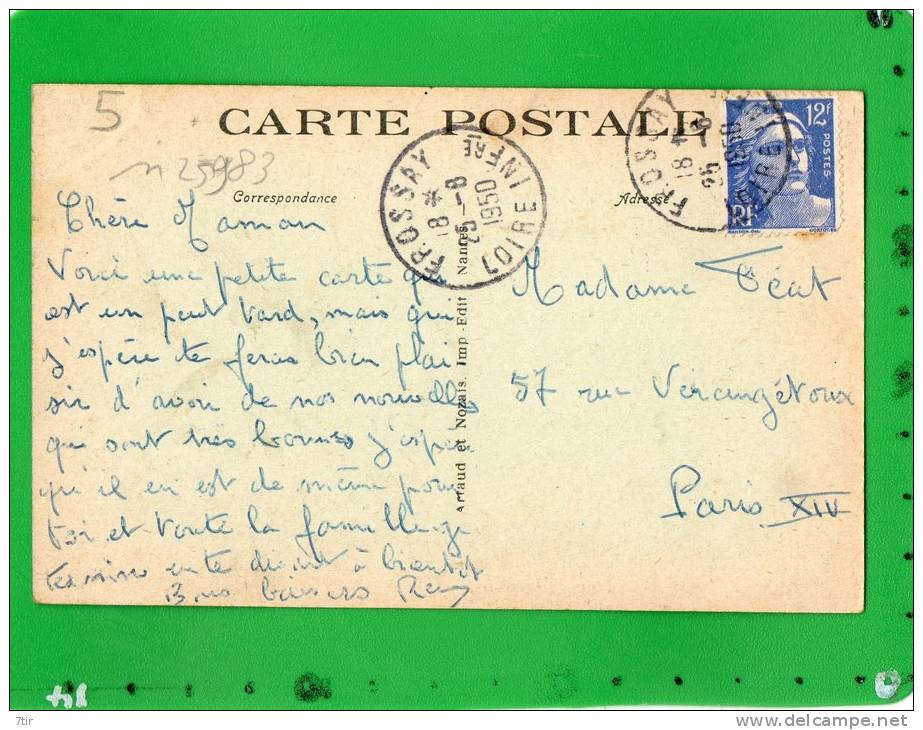 5
CARTE POSTALE
n 25983
Correspondance
Adresse
FROSSAY
18 *
29-8
1950
LOIRE INFRE
FROSSAY
18 *
29-8
1950
LOIRE
12F
POSTES
RF
Chère Maman
Voici une petite carte qui
est un peut tard, mais qui
j'espère te feras bien plai
sir d'avoir de nos nouvelles
qui sont très bonnes j'espère
qu'il en est de même pour
toi et toute la famille je
termine en te disant à bientôt
Bons baisers Remy
Artaud et Nozais. Imp-Edit Nantes
Madame Téat
57 rue Vercingétorix
Paris XIV
14
7tir
www.delcampe.net